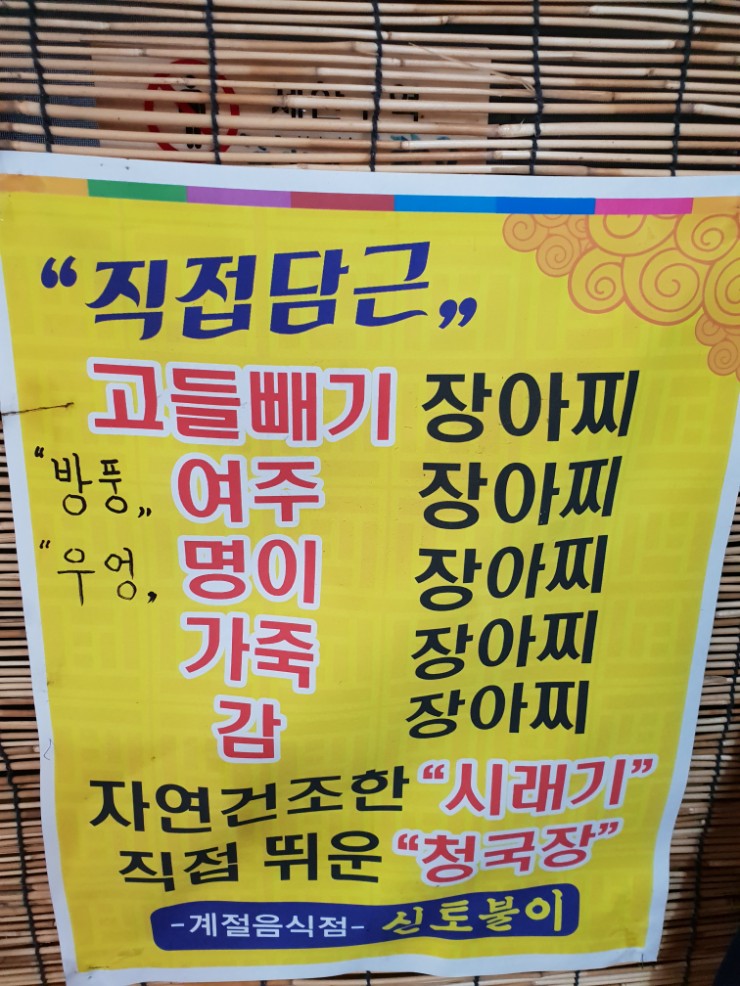 "직접담근"
고들빼기 장아찌
"방풍" 여주 장아찌
"우엉" 명이 장아찌
가죽 장아찌
감 장아찌
자연건조한 "시래기"
직접 띄운 "청국장"
-계절음식점- 신토불이